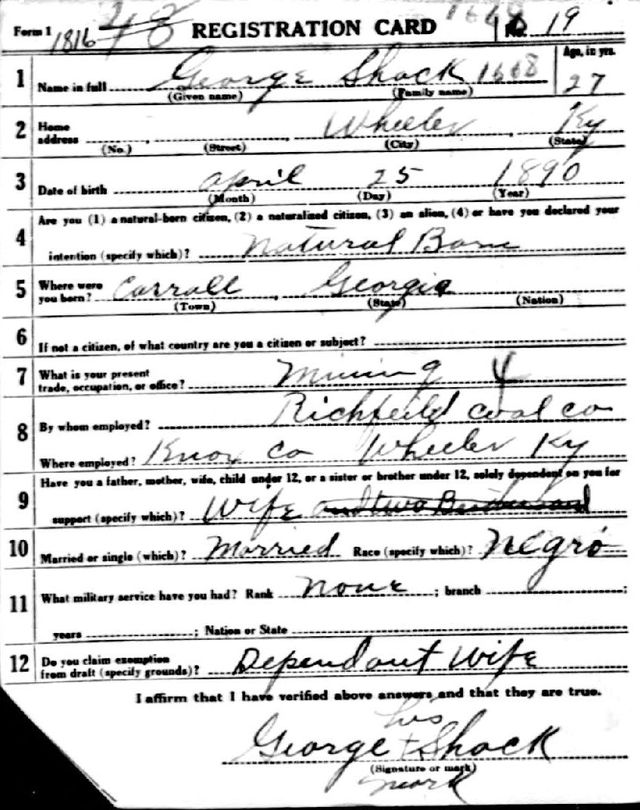 Form 1 REGISTRATION CARD No. 19
1816
Age, in yrs.
1 Name in full George Shock 1668 27
(Given name) (Family name)
2 Home address Wheeler, Ky
(No.) (Street) (City) (State)
3 Date of birth April 25 1890
(Month) (Day) (Year)
Are you (1) a natural-born citizen, (2) a naturalized citizen, (3) an alien, (4) or have you declared your
4 intention (specify which)? Natural Born
5 Where were you born? Carroll, Georgia
(Town) (State) (Nation)
6 If not a citizen, of what country are you a citizen or subject?
7 What is your present trade, occupation, or office? Mining 4
8 By whom employed? Richfeild coal co
Where employed? Knox co Wheeler Ky
Have you a father, mother, wife, child under 12, or a sister or brother under 12, solely dependent on you for
9 support (specify which)? Wife and two
10 Married or single (which)? Married Race (specify which)? Negro
11 What military service have you had? Rank none; branch ;
years ; Nation or State
12 Do you claim exemption from draft (specify grounds)? Dependant Wife
I affirm that I have verified above answers and that they are true.
his
George + Shock
(Signature or mark)
mark